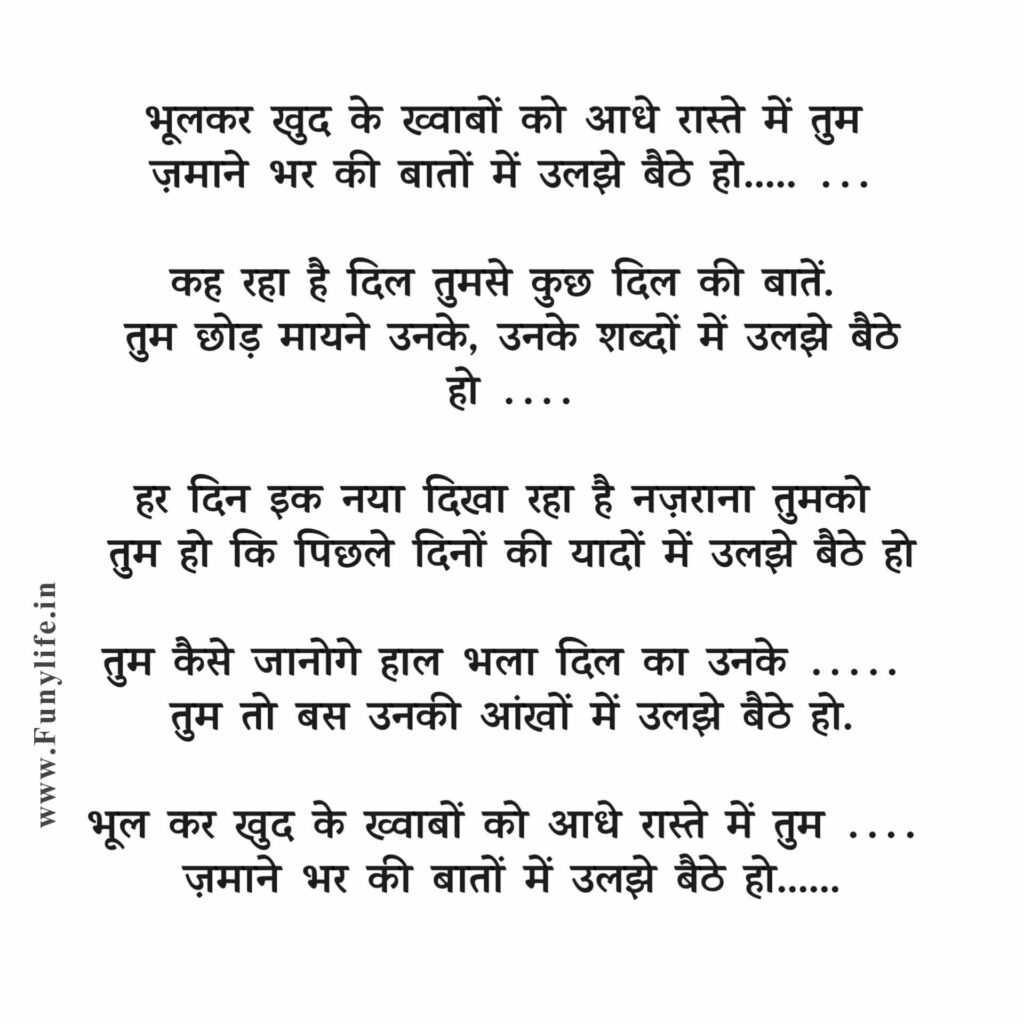 भूलकर खुद के ख्वाबों को आधे रास्ते में तुम
ज़माने भर की बातों में उलझे बैठे हो..... ...
कह रहा है दिल तुमसे कुछ दिल की बातें.
तुम छोड़ मायने उनके, उनके शब्दों में उलझे बैठे
हो ....
हर दिन इक नया दिखा रहा है नज़राना तुमको
तुम हो कि पिछले दिनों की यादों में उलझे बैठे हो
तुम कैसे जानोगे हाल भला दिल का उनके .....
तुम तो बस उनकी आंखों में उलझे बैठे हो.
भूल कर खुद के ख्वाबों को आधे रास्ते में तुम ....
ज़माने भर की बातों में उलझे बैठे हो......
www.Funylife.in